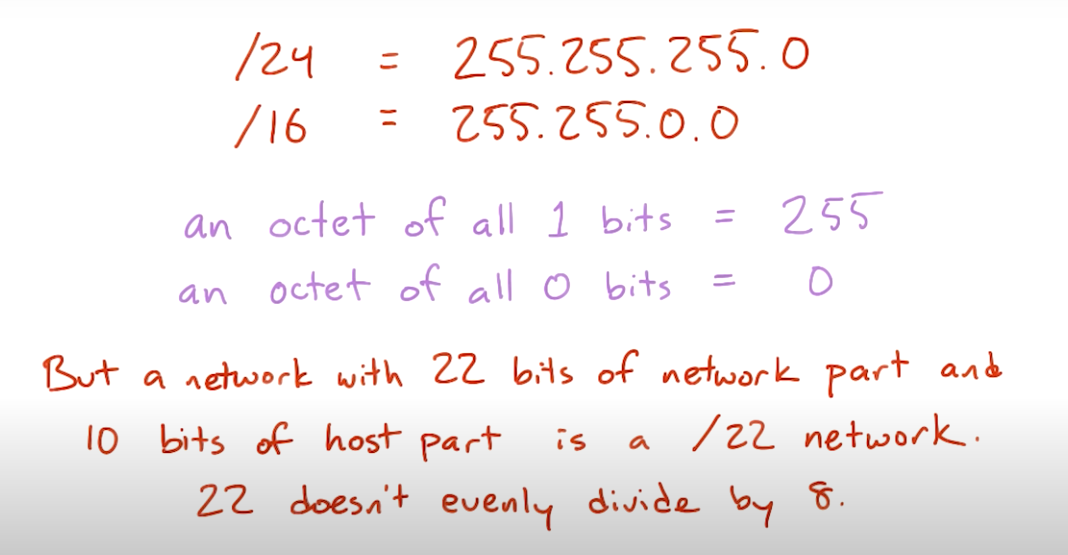 /24 = 255.255.255.0
/16 = 255.255.0.0
an octet of all 1 bits = 255
an octet of all 0 bits = 0
But a network with 22 bits of network part and
10 bits of host part is a /22 network.
22 doesn't evenly divide by 8.